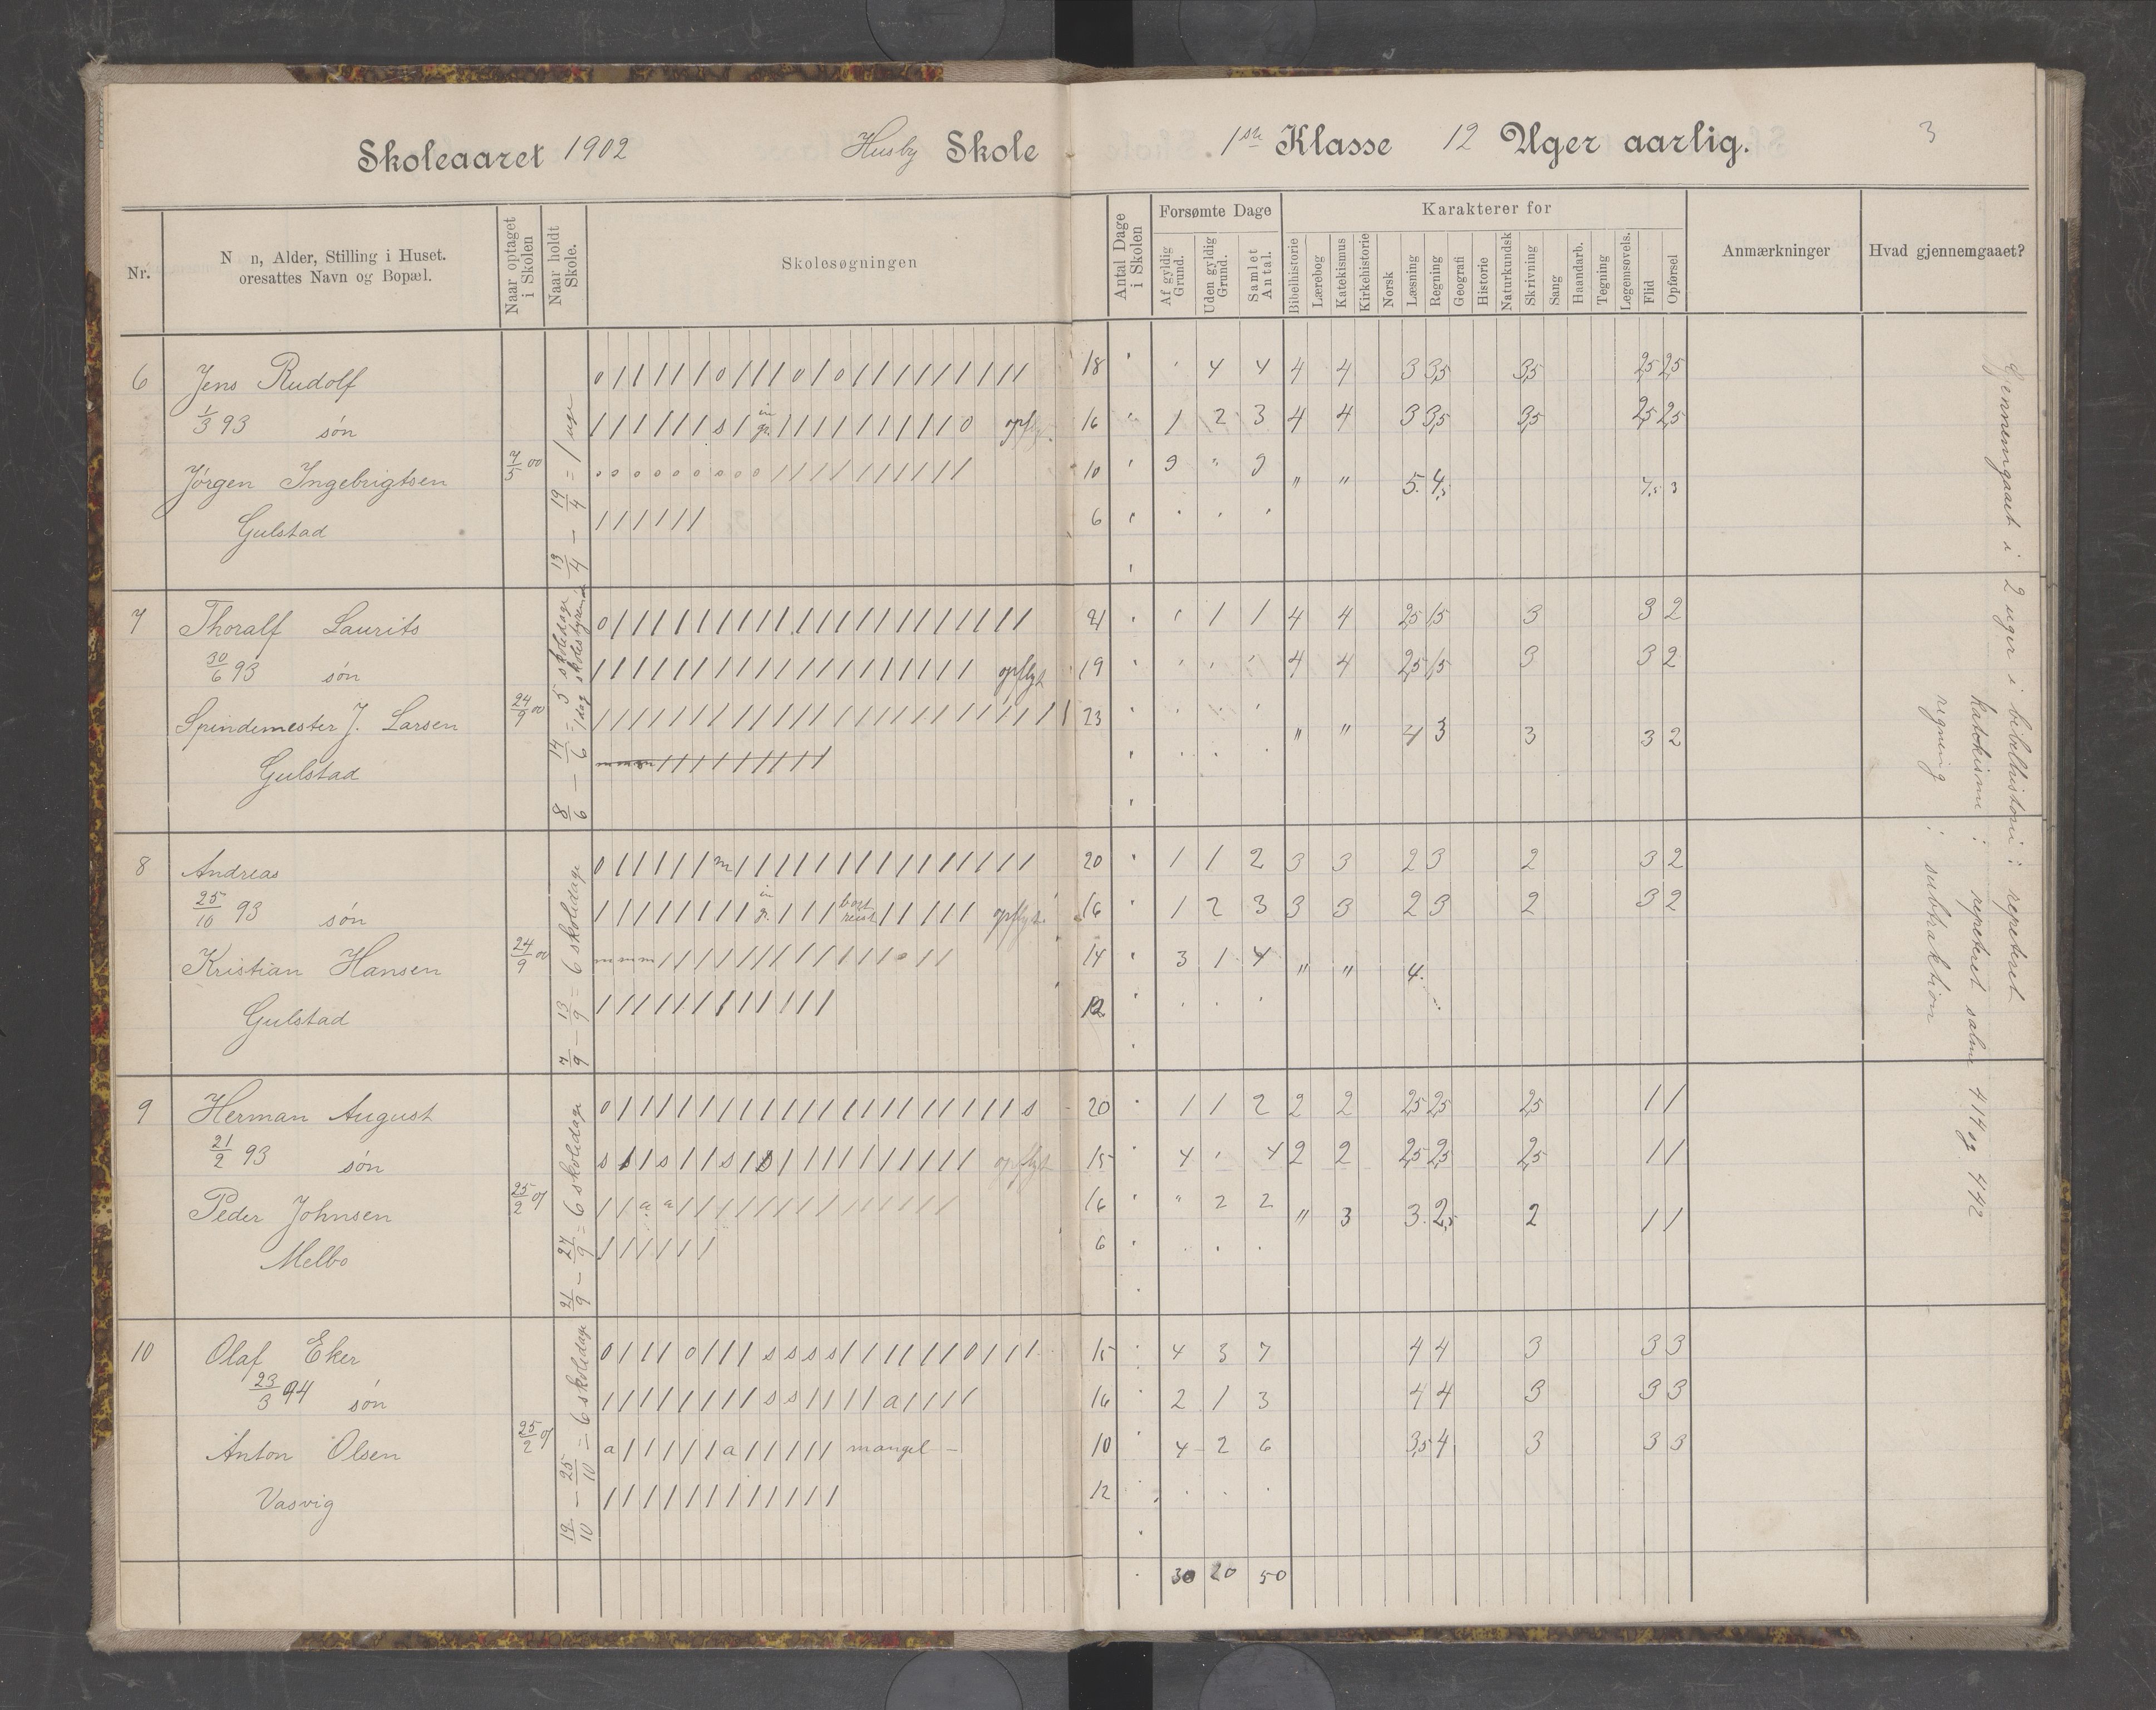 Skoleaaret 1902 Husby Skole 1ste Klasse 12 Uger aarlig. 3
Nr.
N n, Alder, Stilling i Huset.
oresattes Navn og Bopæl.
Naar optaget
i Skolen
Naar holdt
Skole.
Skolesøgningen
Antal Dage
i Skolen
Forsømte Dage
Af gyldig
Grund.
Uden gyldig
Grund.
Samlet
Antal.
Karakterer for
Bibelhistorie
Lærebog
Katekismus
Kirkehistorie
Norsk
Læsning
Regning
Geografi
Historie
Naturkundsk
Skrivning
Sang
Haandarb.
Tegning
Legemsøvels.
Flid
Opførsel
Anmærkninger
Hvad gjennemgaaet?
6 Jens Rudolf 18 4 4 4 4 3 3,5 3,5 2,5 2,5
1/3 93 søn opflyt. 16 1 2 3 4 4 3 3,5 3,5 2,5 2,5
Jørgen Ingebrigtsen 7/5 00 10 9 " 9 " "
Gulstad 6
13/4 – 19/4 = 1 uge
7 Thoralf Laurits 21 1 1 4 4 2,5 1,5 3 3 2
30/6 93 søn opflyt 19 4 4 2,5 1,5 3 3 2
Spindemester J. Larsen 24/9 00 23 " " 4 3 3 3 2
Gulstad
8/6 – 14/6 = 5 skoledage
1 dag skolestyremøde
8 Andreas 20 1 1 2 3 3 2 3 2 3 2
25/10 93 søn bort reist opflyt. 16 1 2 3 3 3 2 3 2 3 2
Kristian Hansen 24/9 00 14 3 1 4 " " 4
Gulstad 12
7/9 – 13/9 = 6 skoledage
9 Herman August 20 1 1 2 2 2 2,5 2,5 2,5 1 1
21/2 93 søn opflyt 15 4 4 2 2 2,5 2,5 2,5 1 1
Peder Johnsen 25/2 01 16 " 2 2 " 3 3 2,5 2 1 1
Melbo 6
21/9 – 27/9 = 6 skoledage
10 Olaf Eker 15 4 3 7 4 4 3 3 3
23/3 94 søn 16 2 1 3 4 4 3 3 3
Anton Olsen 25/2 01 mangel – 10 4 2 6 3,5 4 3 3 3
Vasvig 12
19/10 – 25/10 = 6 skoledage
30 20 50
Gjennemgaaet i 2 uger i bibelhistorie : repeteret
katekisme : repeteret salme 414 og 442
regning : subtraktion